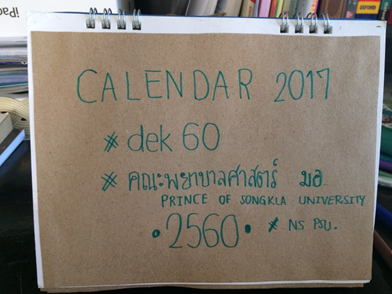 iPad
OXFORD
CALENDAR 2017
* dek 60
* คณะพยาบาลศาสตร์ มอ.
PRINCE OF SONGKLA UNIVERSITY
•2560• * NS PSU.